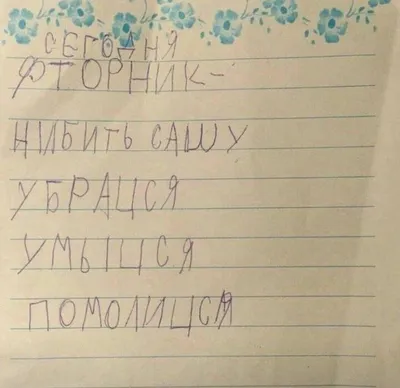 СЕГОДНЯ
ФТОРНИК-
НИБИТЬ САШУ
УБРАЦСЯ
УМЫЦСЯ
ПОМОЛИЦСЯ